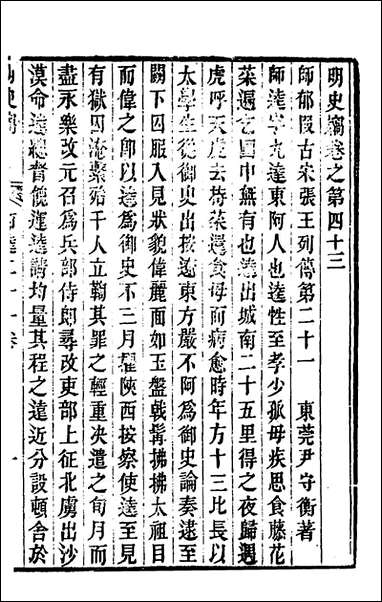 明史竊卷之第四十三
師郁段古宋張王列傳第二十一 東莞尹守衡著
師逵字九逵東阿人也逵性至孝少孤母疾思食藤花
菜遍乞國中無有也逵出城南二十五里得之夜歸遇
虎呼天虎去持菜還食母而病愈時年方十三比長以
太學生從御史出按逵東方嚴不阿為御史論奏逮至
闕下囚服入見狀貌偉麗而如玉盤戟髯拂拂太祖目
而偉之即以逵為御史不三月擢陝西按察使逵至見
有獄囚淹繫殆千人立鞫其罪之輕重決遣之旬月而
盡永樂改元召為兵部侍郎尋改吏部上征北虜出沙
漠命逵總督餽運逵請均量其程之遠近分設頓舍於